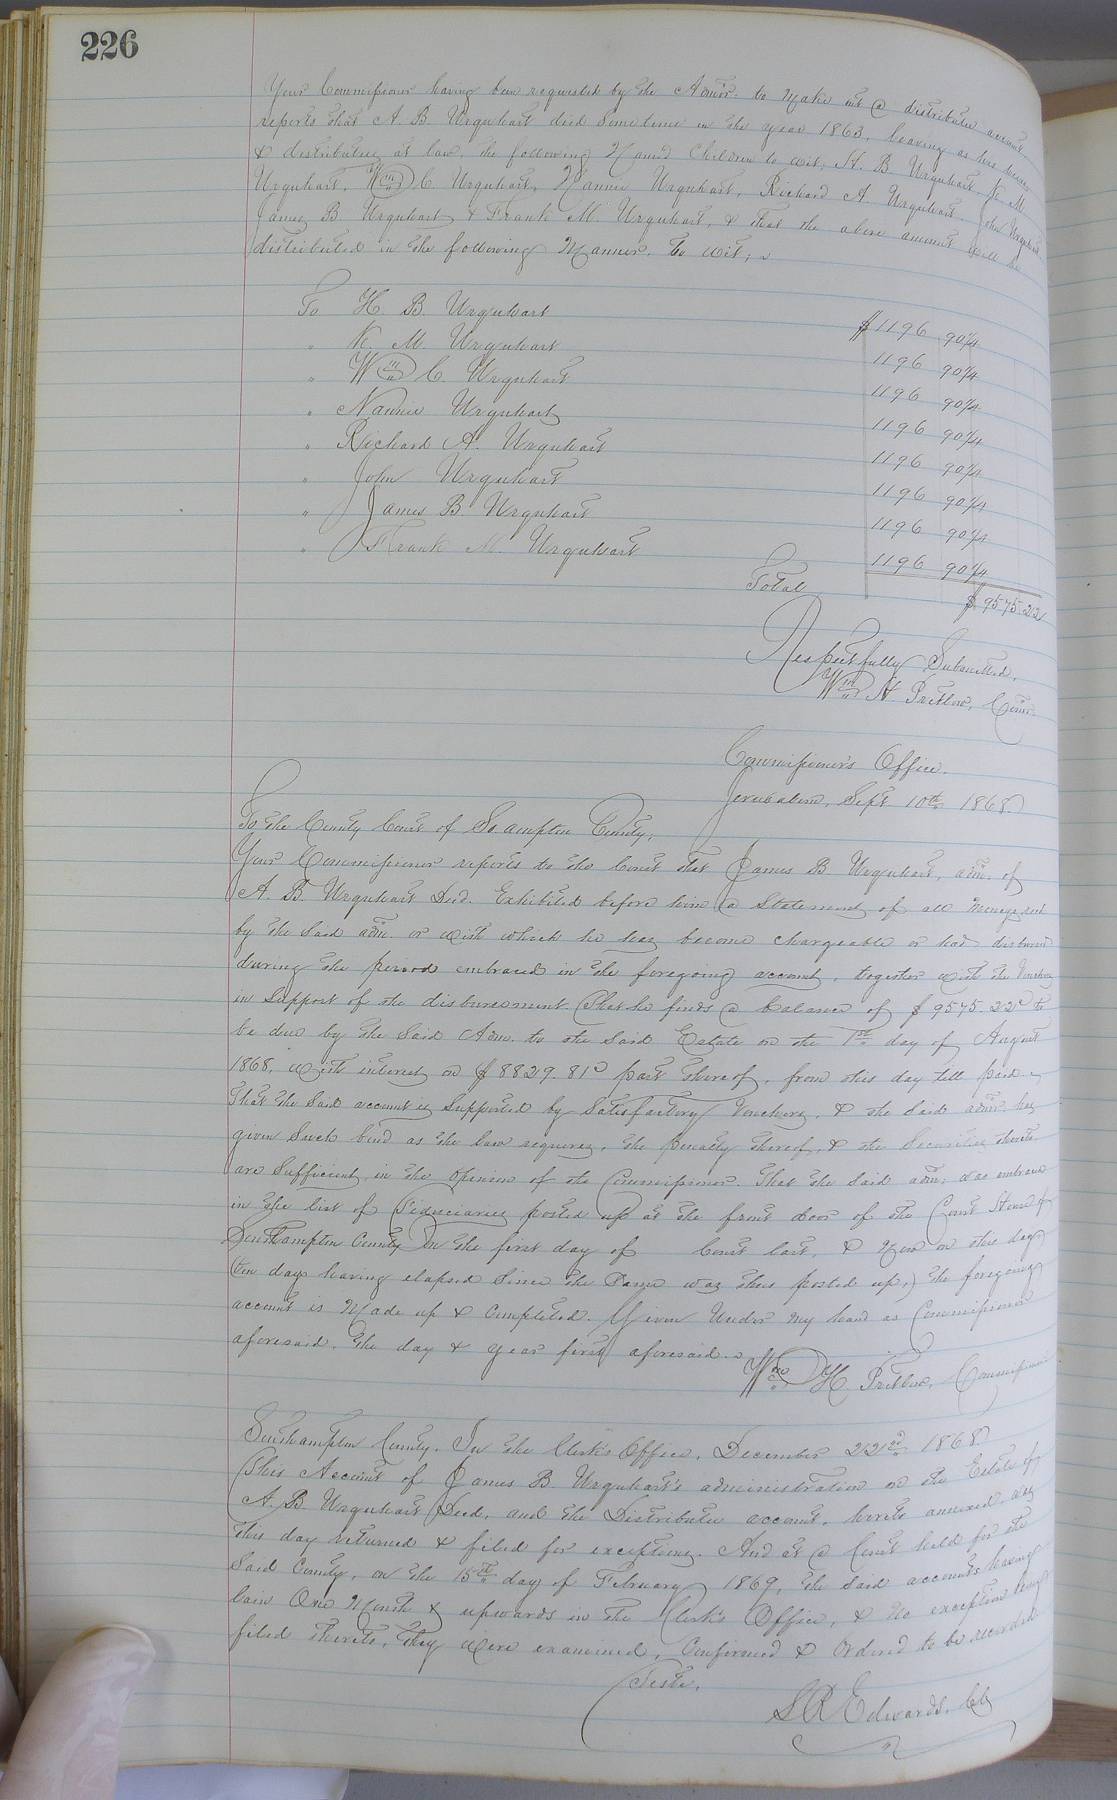 226
Your Commissioner having been requested by the Admr. to make out a distributive account,
reports that A. B. Urquhart died sometime in the year 1863, leaving as his heirs
& distributees at law, the following named children to wit; H. B. Urquhart, K. M.
Urquhart, Wm C. Urquhart, Nannie Urquhart, Richard A. Urquhart, John Urquhart,
James B. Urquhart & Frank M. Urquhart, & that the above amount will be
distributed in the following manner, to wit;
To H. B. Urquhart $1196 90 1/4
" K. M. Urquhart 1196 90 1/4
" Wm C. Urquhart 1196 90 1/4
" Nannie Urquhart 1196 90 1/4
" Richard A. Urquhart 1196 90 1/4
" John Urquhart 1196 90 1/4
" James B. Urquhart 1196 90 1/4
" Frank M. Urquhart 1196 90 1/4
Total $9575.22
Respectfully Submitted,
Wm H Pretlow, Comr.
Commissioner's Office.
Jerusalem, Sept 10th 1868.
To the County Court of So.ampton County;
Your Commissioner reports to the Court that James B. Urquhart, adm. of
A. B. Urquhart Decd. Exhibited before him a Statement of all moneys recd
by the said adm. or with which he has become chargeable or had disbursed
during the period embraced in the foregoing account, together with the Vouchers
in support of the disbursement. That he finds a balance of $9575.22c to
be due by the said Adm. to the said Estate on the 1st day of August
1868, with interest on $8829.81c part thereof, from this day till paid.
That the said account is supported by Satisfactory Vouchers, & the said admr. has
given such bond as the law requires, the penalty thereof, & the Securities thereto
are Sufficient, in the opinion of the Commissioner. That the said adm. was embraced
in the list of Fiduciaries posted up at the front door of the Court House of
Southampton County on the first day of Court last, & now on this day
(ten days having elapsed since the same was thus posted up,) the foregoing
account is made up & completed. Given Under my hand as Commissioner
aforesaid, the day & year first aforesaid.
Wm H. Pretlow, Commissioner
Southampton County. In the Clerk's Office, December 22nd 1868
This Account of James B. Urquhart's administration on the Estate of
A. B. Urquhart Decd, and the Distributive account, hereto annexed, was
this day returned & filed for exceptions. And at a Court held for the
said County, on the 15th day of February 1869, the said accounts having
lain One Month & upwards in the Clerk's Office, & no exceptions being
filed thereto, they were examined, Confirmed & Ordered to be recorded
Teste,
S R Edwards, Clk